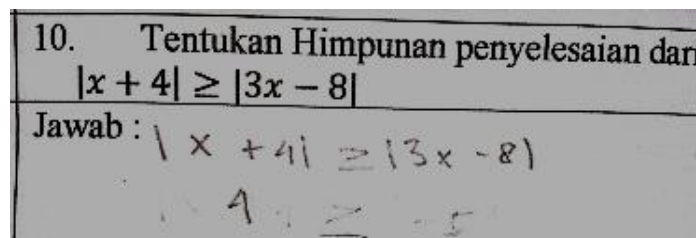 10. Tentukan Himpunan penyelesaian dari
|x + 4| ≥ |3x − 8|
Jawab : | x + 4| ≥ |3x - 8|
4 ≥